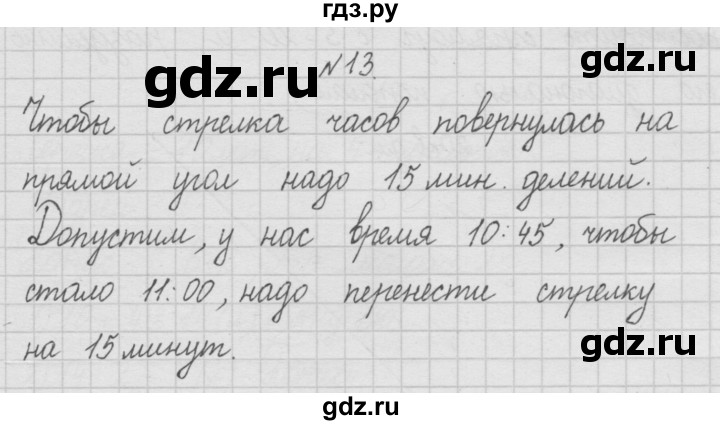 гдз.ру
gdz.ru
gdz.ru
№13.
Чтобы стрелка часов повернулась на
прямой угол надо 15 мин. делений.
Допустим, у нас время 10:45, чтобы
стало 11:00, надо перенести стрелку
на 15 минут.
gdz.ru
gdz.ru
gdz.ru